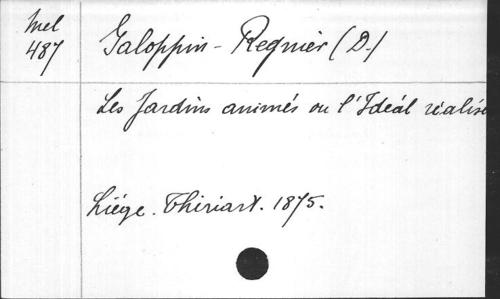 Mel
487
Galoppin-Regnier (D.)
Les Jardins animés ou l'Idéal réalisé
Liége. Thiriart. 1875.